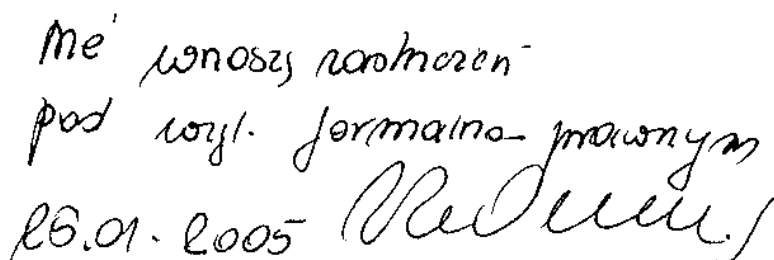 Nie wnoszę zastrzeżeń
pod wzgl. formalno-prawnym
26.01.2005